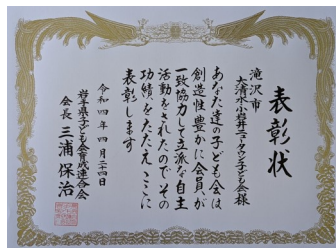 表彰状
滝沢市
大清水小岩井ニュータウン子ども会様
あなた達の子ども会は
創造性豊かに会員が
一致協力して立派な自主
活動をされたのでその
功績をたたえここに
表彰します
令和四年四月二十四日
岩手県子ども会育成連合会
会長 三浦保治